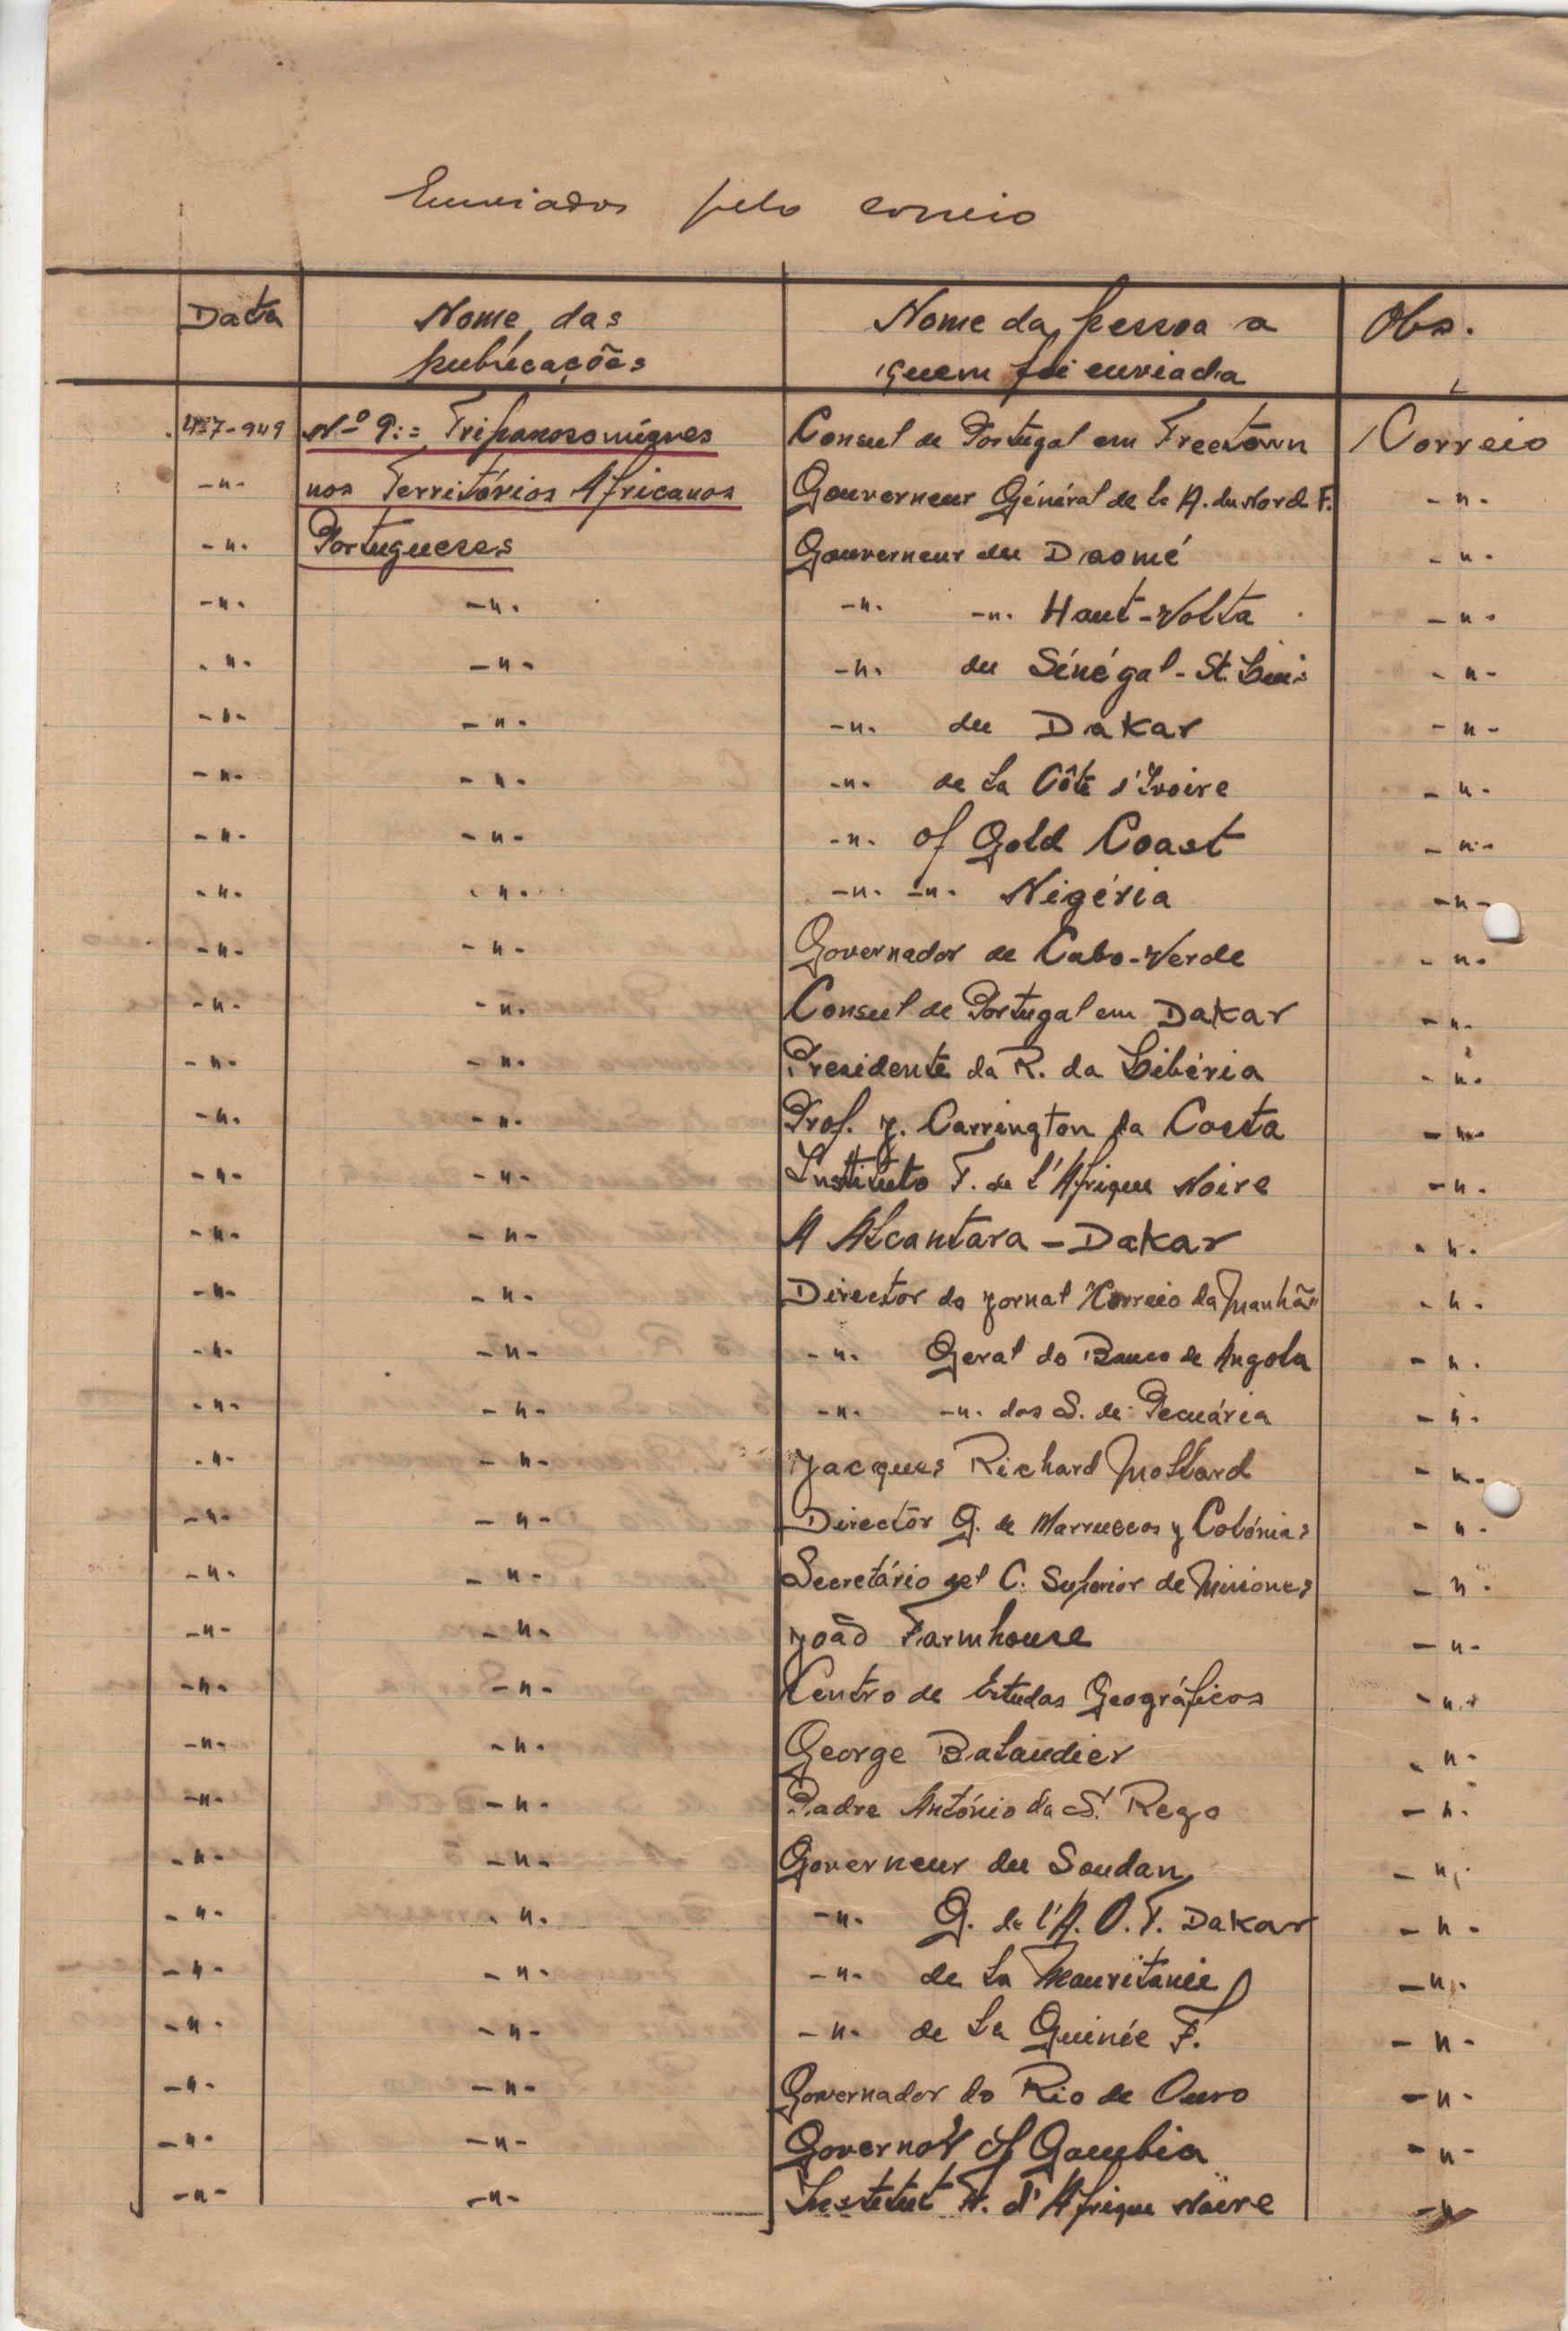 Enviados pelo correio
Data Nome das publicações Nome da pessoa a quem foi enviada Obs.
7-949 Nº 9:= Tripanosomígues Consul de Portugal em Freetown Correio
-"- nos Territórios Africanos Gouverneur Général de la A. du Nord F. -"-
-"- Portugueses Gouverneur du Daomé -"-
-"- -"- -"- -"- Haut-Volta -"-
-"- -"- -"- du Sénégal - St. Luis -"-
-"- -"- -"- du Dakar -"-
-"- -"- -"- de la Côte d'Ivoire -"-
-"- -"- -"- of Gold Coast -"-
-"- -"- -"- -"- Nigéria -"-
-"- -"- Governador de Cabo-Verde -"-
-"- -"- Consul de Portugal em Dakar -"-
-"- -"- Presidente da R. da Libéria -"-
-"- -"- Prof. J. Carrington da Costa -"-
-"- -"- Instituto F. de l'Afrique Noire -"-
-"- -"- A Alcantara - Dakar -"-
-"- -"- Director do Jornal "Correio da Manhã" -"-
-"- -"- -"- Geral do Banco de Angola -"-
-"- -"- -"- -"- dos S. de Pecuária -"-
-"- -"- Jacques Richard Mollard -"-
-"- -"- Director G. de Marruecos y Colónias -"-
-"- -"- Secretário del C. Superior de Misiones -"-
-"- -"- João Farmhouse -"-
-"- -"- Centro de Estudos Geográficos -"-
-"- -"- George Balandier -"-
-"- -"- Padre António da S. Rego -"-
-"- -"- Governeur du Soudan -"-
-"- -"- -"- G. de l'A. O. F. Dakar -"-
-"- -"- -"- de la Mauritanie -"-
-"- -"- -"- de la Guinée F. -"-
-"- -"- Governador do Rio de Ouro -"-
-"- -"- Governor of Gambia -"-
-"- -"- Institut F. d'Afrique Noire -"-